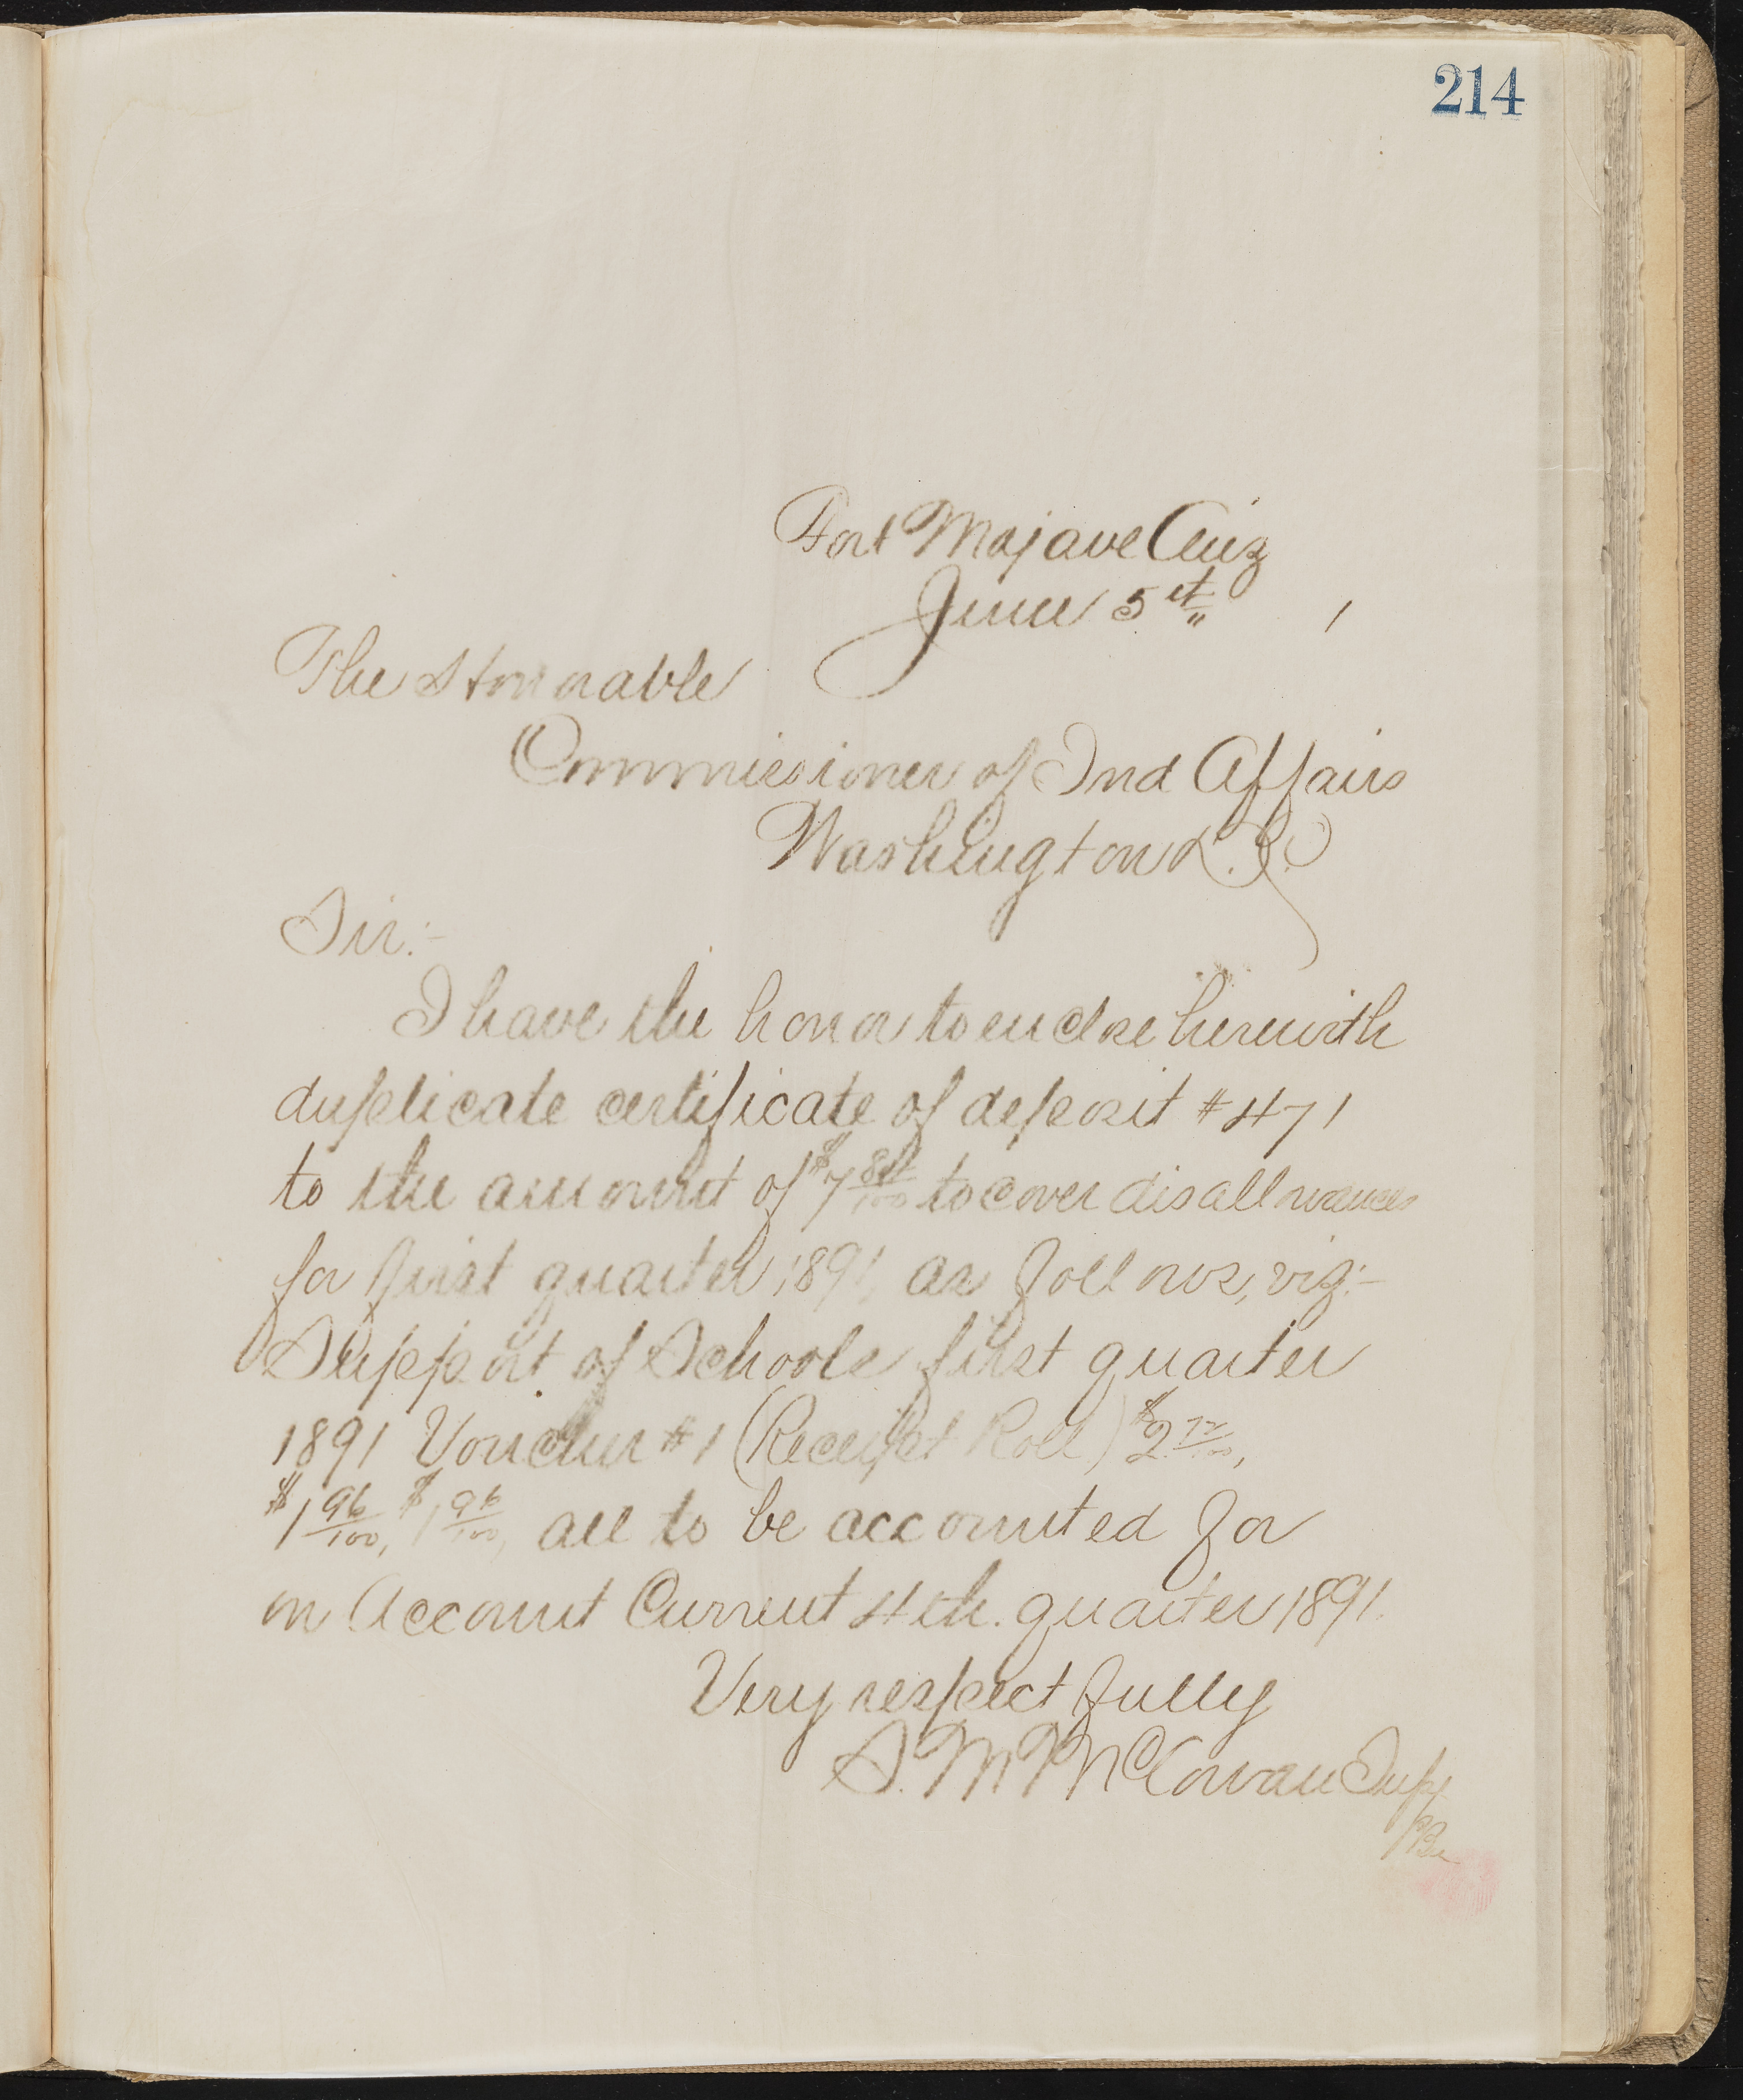 214
Fort Mojave Ariz
June 5th 1
The Honorable
Commissioner of Ind Affairs
Washington D.C.
Sir:-
I have the honor to enclose herewith
duplicate certificate of deposit #471
to the amount of $7 84/100 to cover disallowances
for first quarter 1891, as follows, viz:-
Support of Schools first quarter
1891 Voucher #1 (Receipt Roll) $2 72/100,
$1 96/100, $1 96/100, all to be accounted for
on Account Current 4th. quarter 1891.
Very respectfully
S. M. McCowan Supt